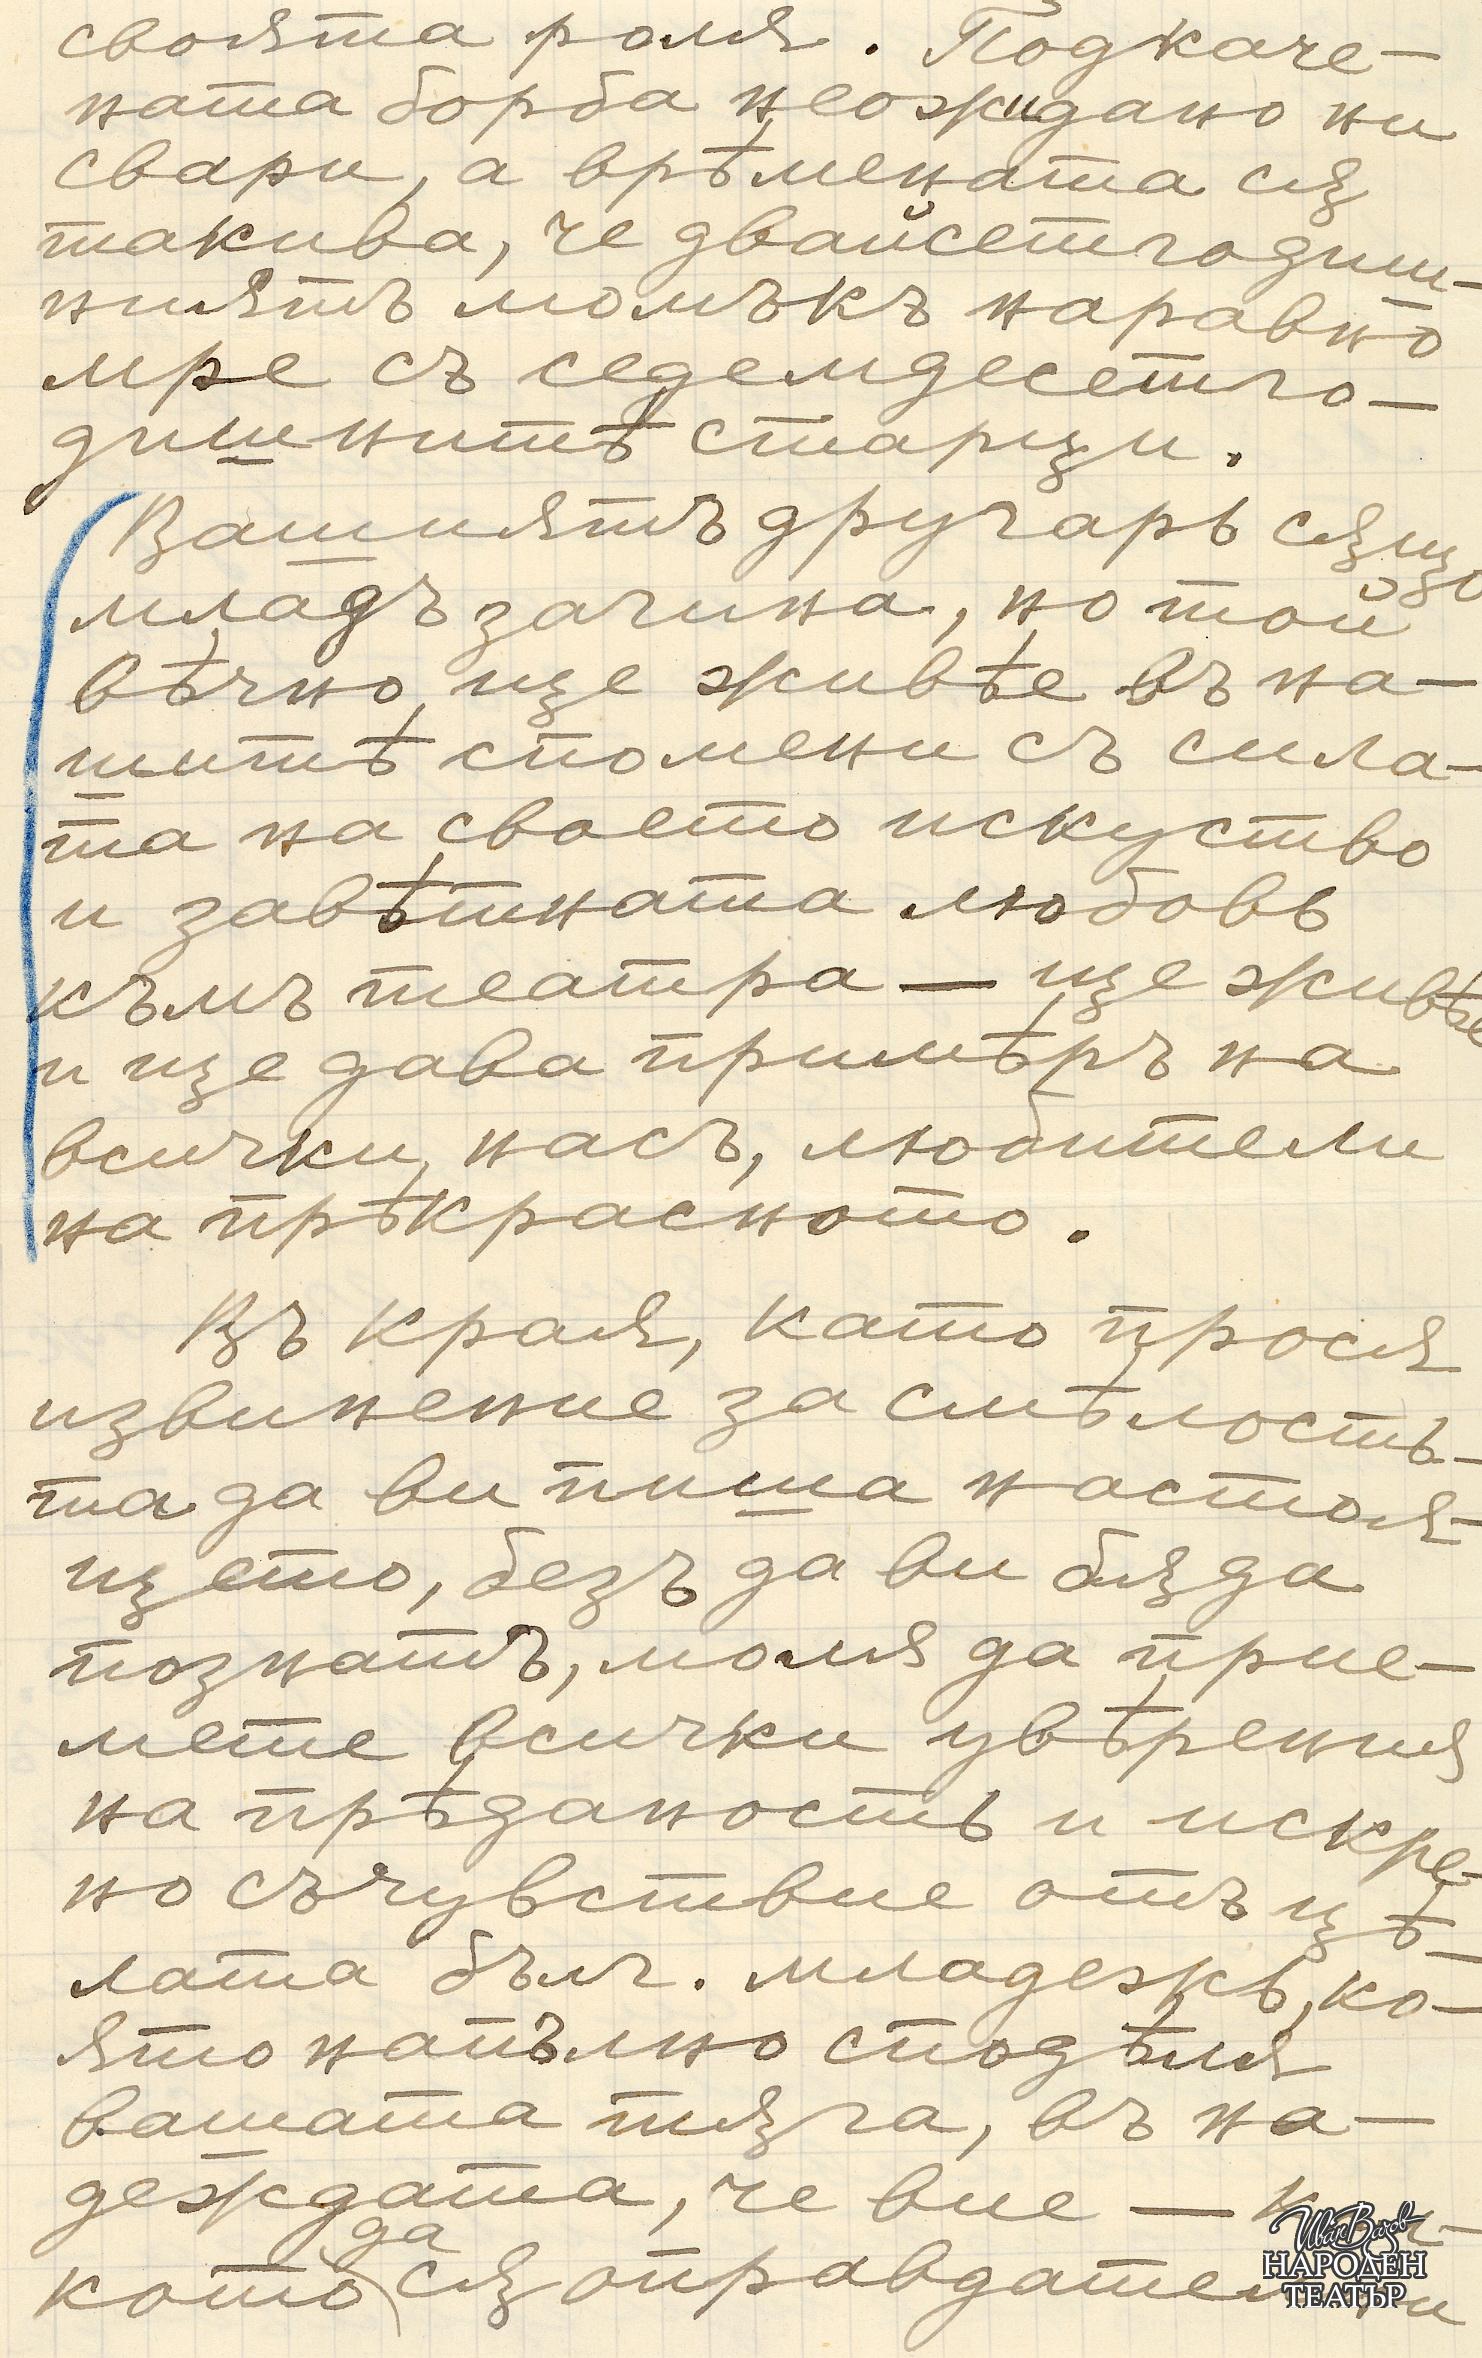 своята роля. Подкаче-
ната борба неожидано ни
свари, а врѣмената сѫ
такива, че двайсетгодиш-
ниятъ момъкъ наравно
мре съ седемдесетго-
дишнитѣ старци.
Вашиятъ другарь сѫщо
младъ загина, но той
вѣчно ще живѣе въ на-
шитѣ спомени съ сила-
та на своето искуство
и завѣтната любовь
къмъ театра — ще живѣе
и ще дава примѣръ на
всички насъ, любители
на прѣкрасното.
Въ края, като прося
извинение за смѣлость-
та да ви пиша настоя-
щето, безъ да ви бѫда
познатъ, моля да прие-
мете всички увѣрения
на прѣданость и искре-
но съчувствие отъ цѣ-
лата бълг. младежь, ко-
ято напълно сподѣля
вашата тѫга, въ на-
деждата, че вие —
да
които сѫ оправдатели
Иван Вазов
НАРОДЕН
ТЕАТЪР